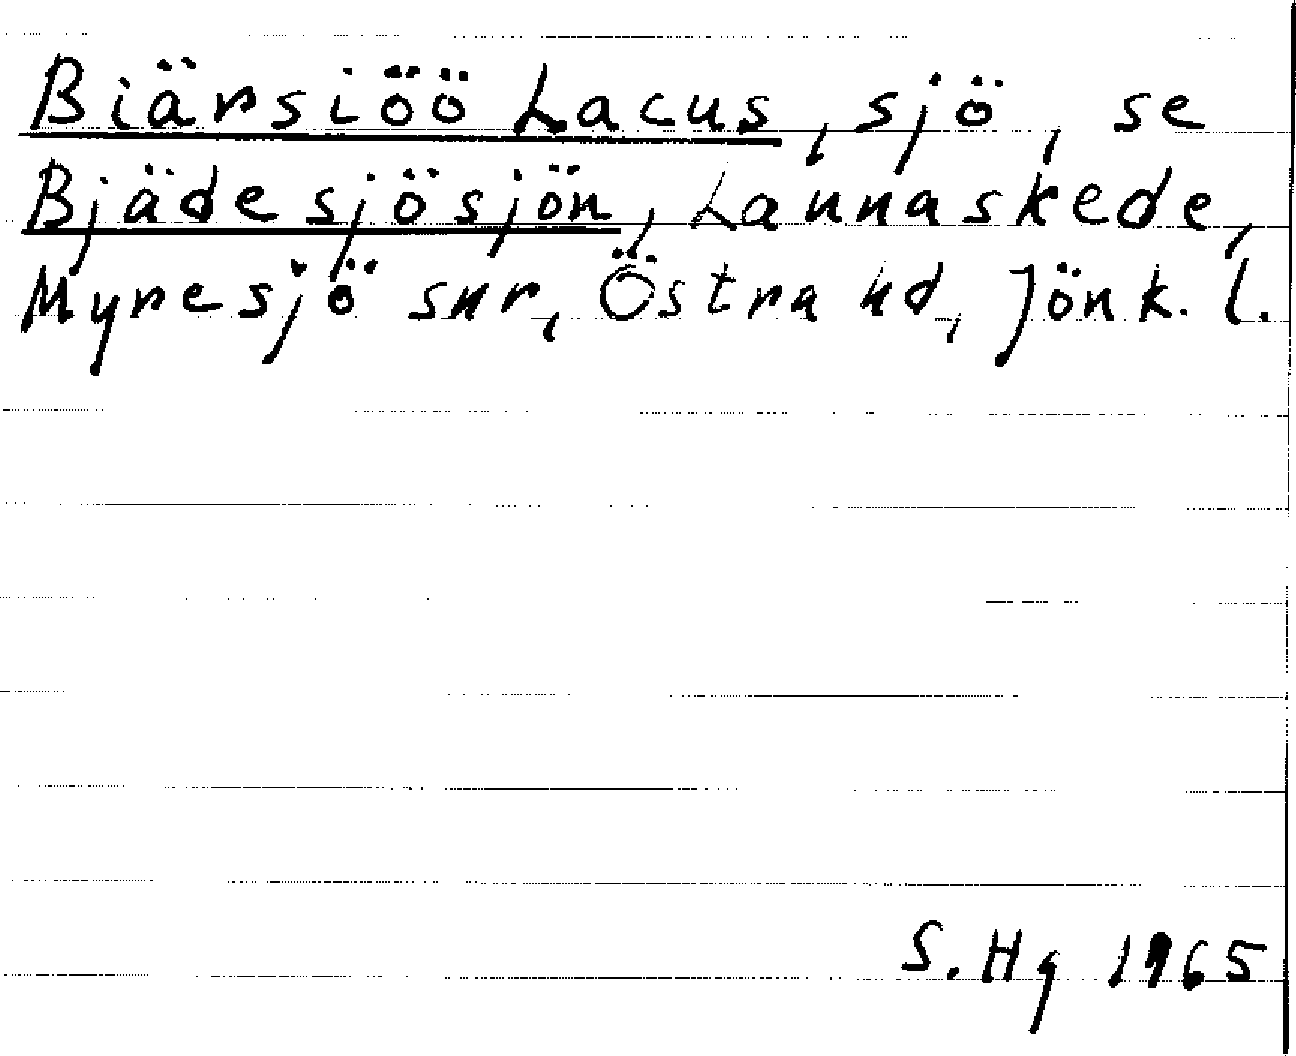 Biärsiöö Lacus, sjö, se
Bjädesjösjön, Lannaskede,
Myresjö snr, Östra hd, Jönk. l.
S. Hg 1965